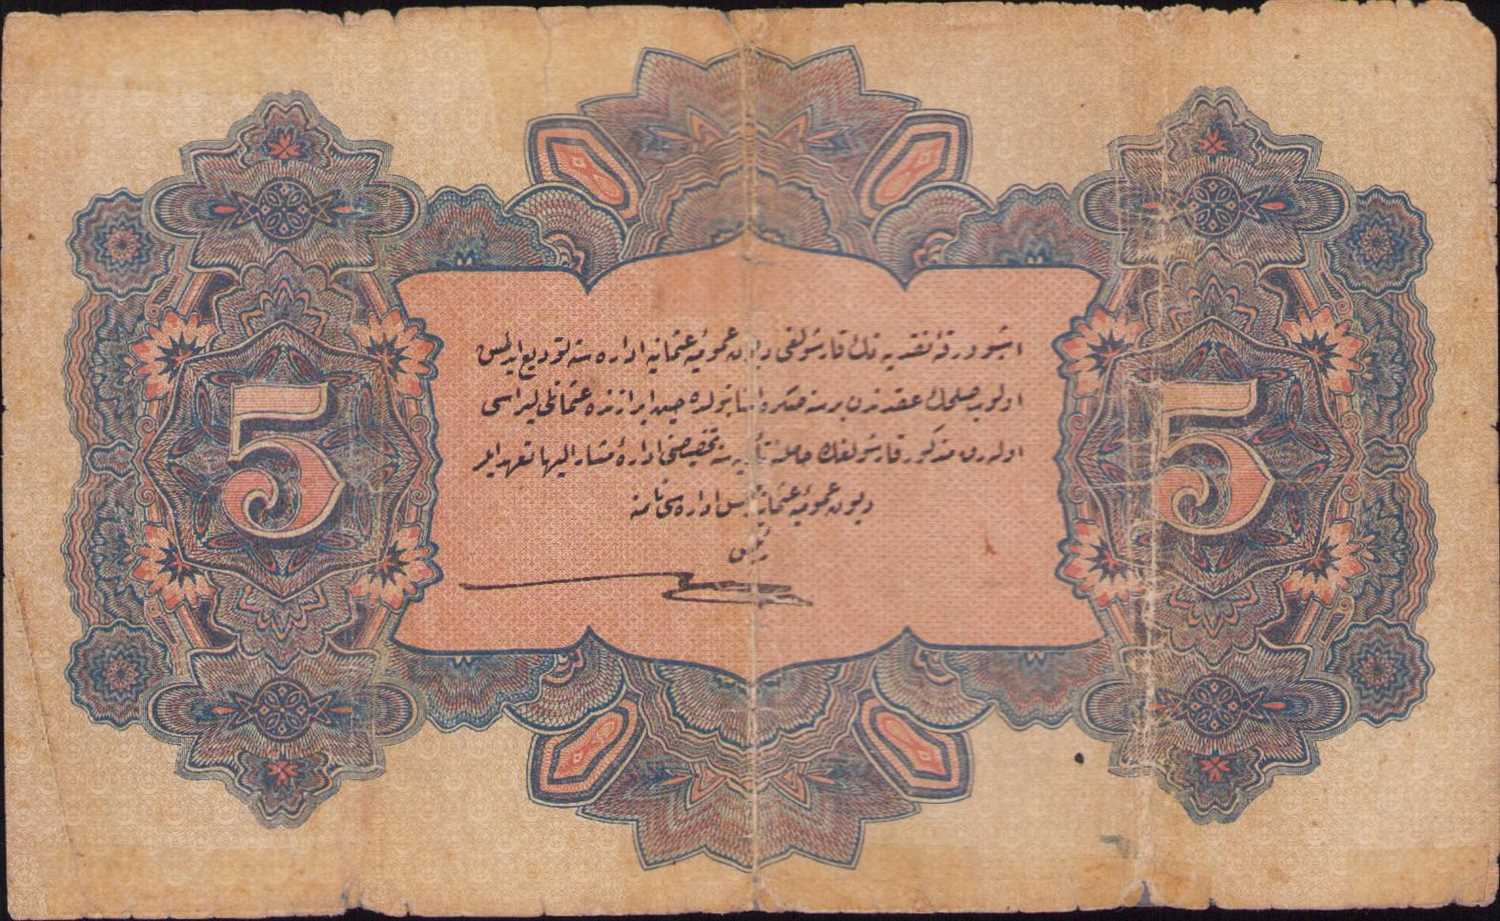 اشبو ورقۀ نقدیه نك قارشولغی دیون عمومیۀ عثمانیه اداره سنه تودیع ایدلمش
اولوب صلحك عقدندن بر سنه صكره استانبولده حین ابرازنده عثمانلی لیراسی
اوله رق مذكور قارشولغك حاملنه تأدیه سنه تخصیصنی ادارۀ مشار الیها تعهد ایلر
دیون عمومیۀ عثمانیه مجلس اداره سی نامنه
رئیس
5
5